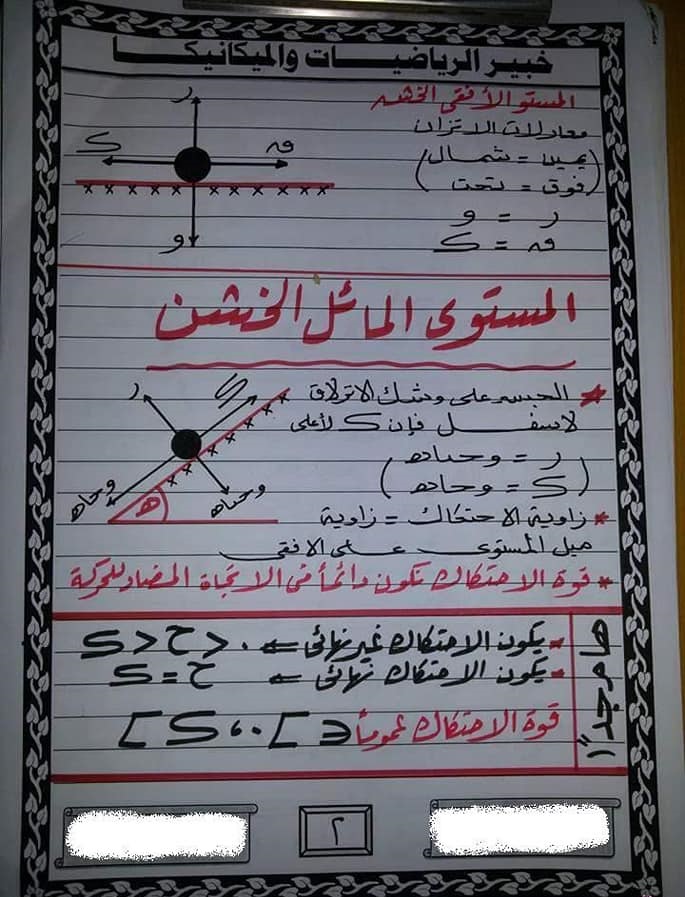 خبير الرياضيـــات والميكانيكـــا
المستو الأفقى الخشن
معادلات الاتزان
(يمين = شمال
فوق = تحت)
ر = و
ى = ك
ر
ك
ى
و
المستوى المائل الخشن
* الجسم على وشك الانزلاق
لاسفل فإن ك لأعلى
(ر = و حتا هـ
ك = و حا هـ)
ر
ك
و حا هـ
و حتا هـ
هـ
* زاوية الاحتكاك = زاوية
ميل المستوى على الافقى
* قوة الاحتكاك تكون دائماً فى الاتجاة المضاد للحركة
هام جداً
- يكون الاحتكاك غير نهائى ← ٠ < ح < ك
- يكون الاحتكاك نهائى ← ح = ك
قوة الاحتكاك عموماً ∈ [٠ ، ك]
٢